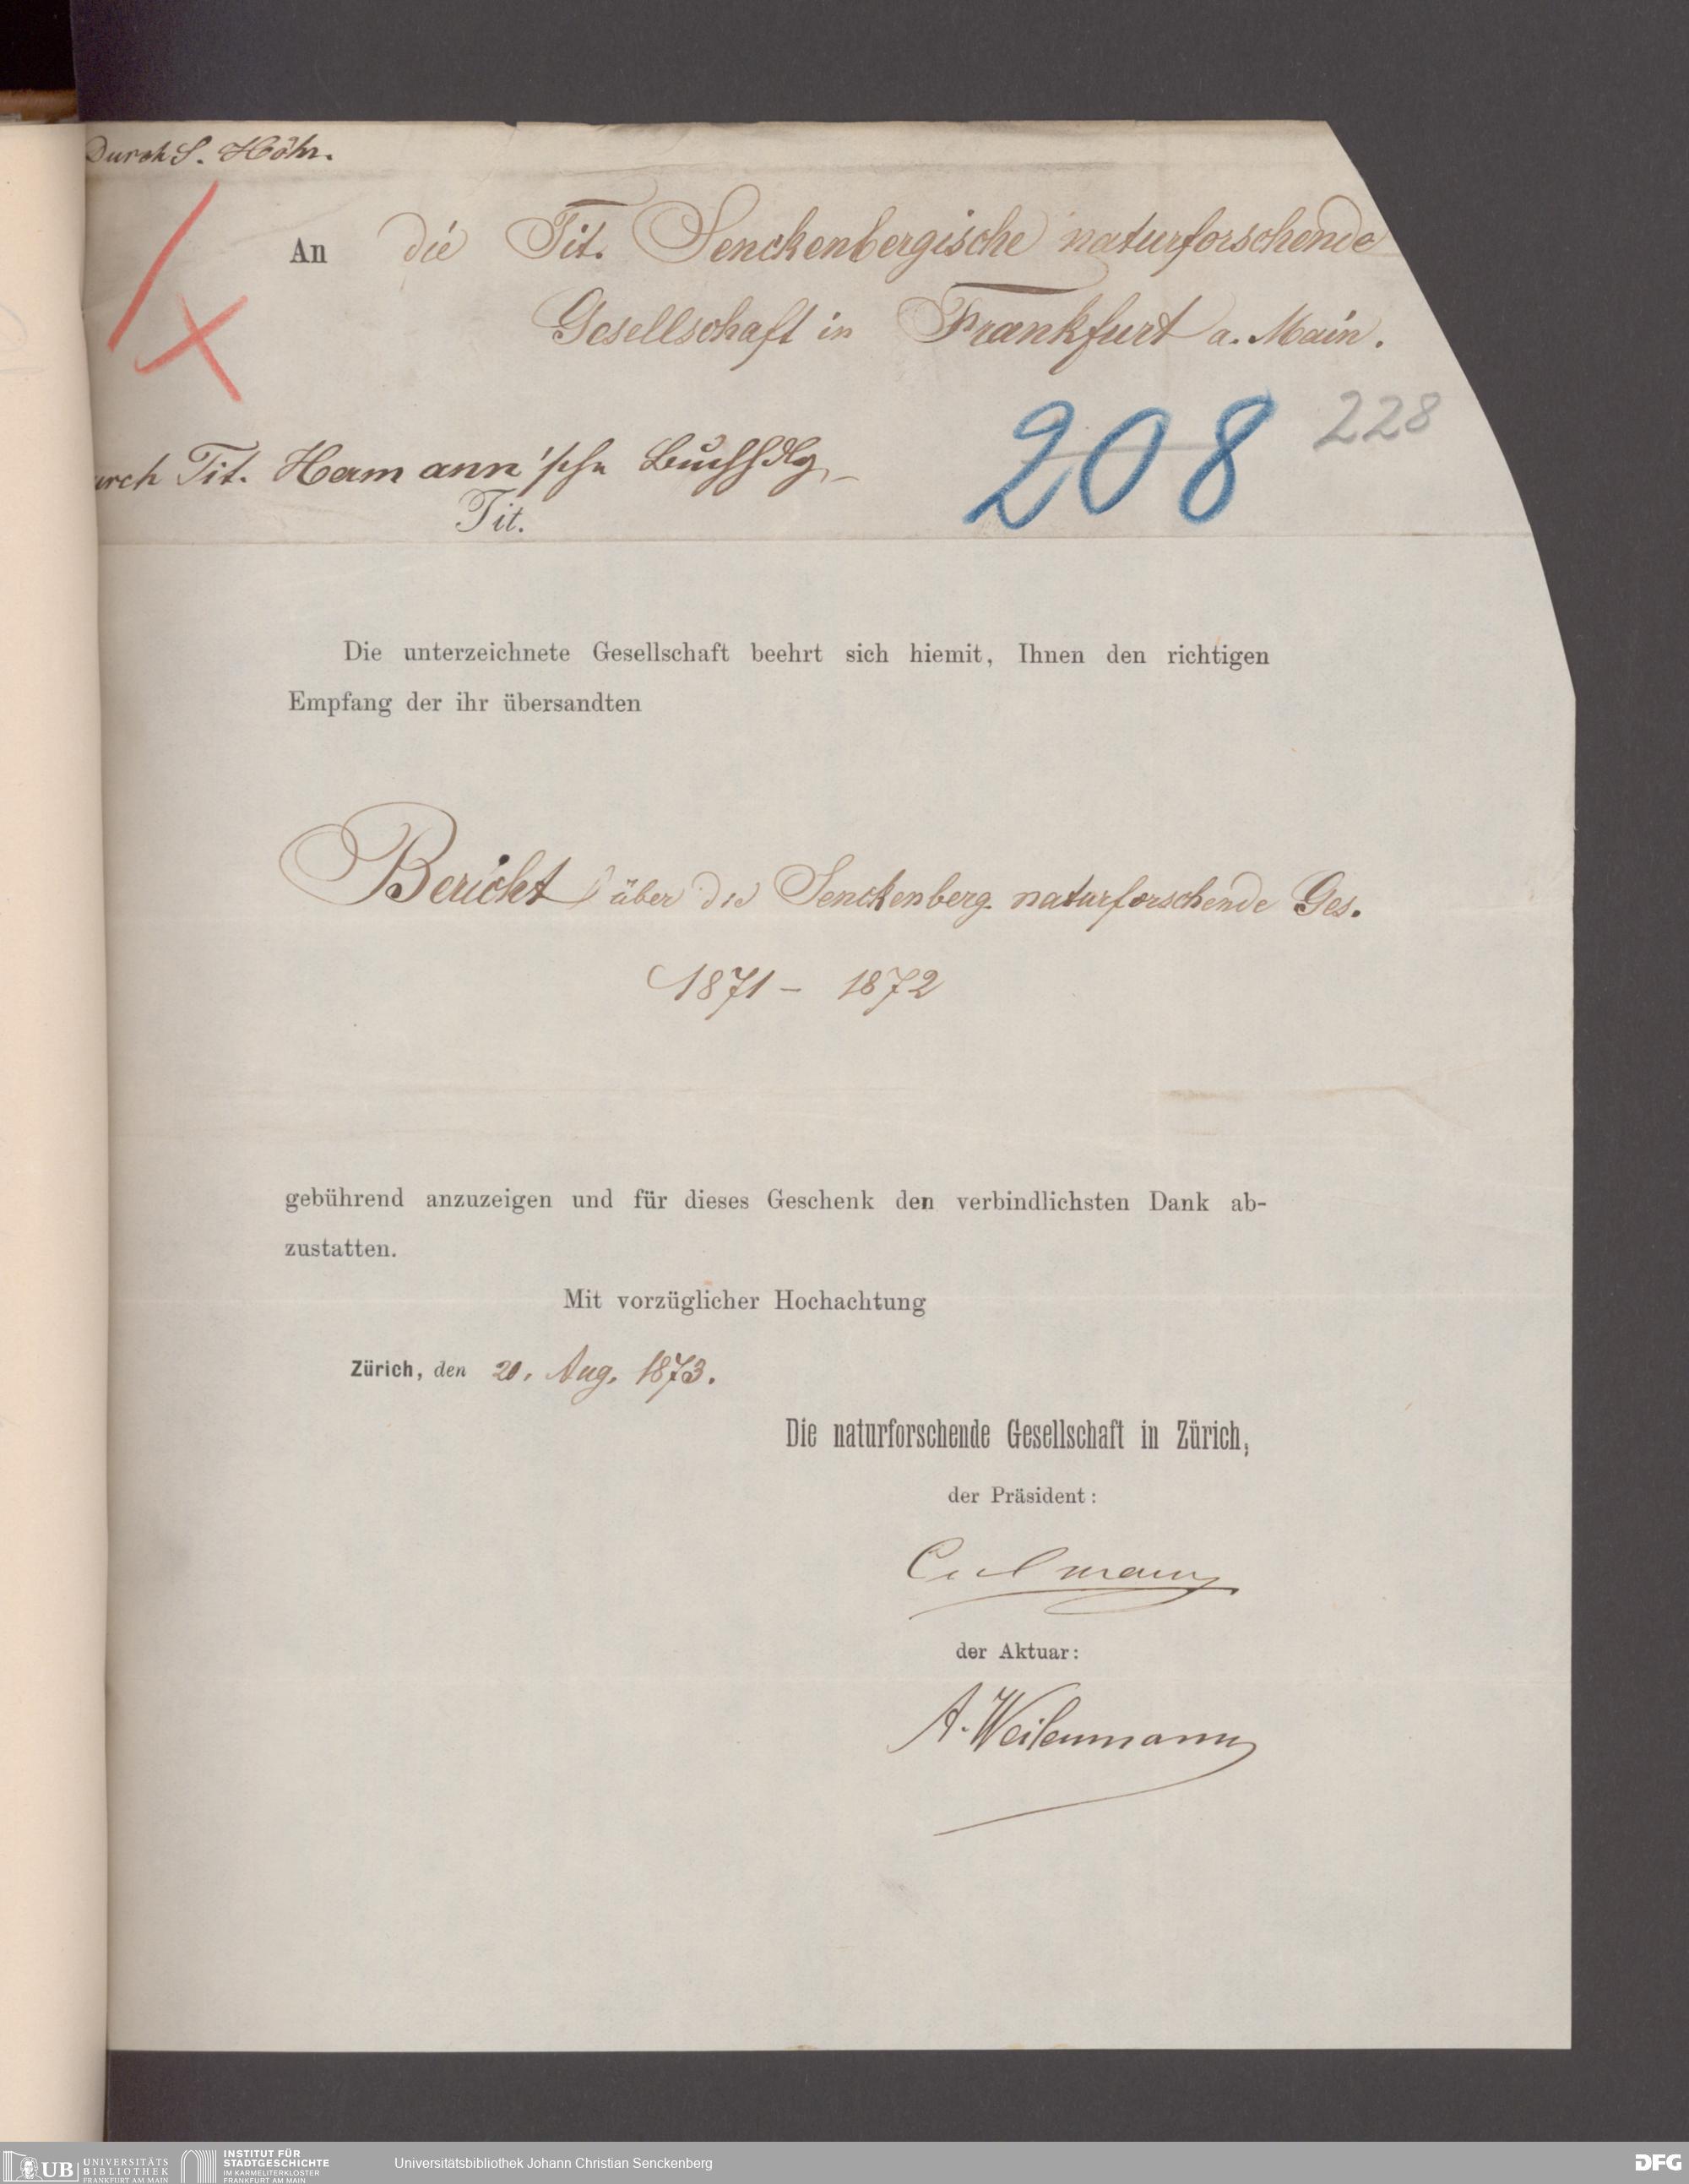 Durch S. Höhr.
An die Tit. Senckenbergische naturforschende
Gesellschaft in Frankfurt a. Main.
208 228
urch Tit. Hermann'sche Buchhdlg.
Tit.
Die unterzeichnete Gesellschaft beehrt sich hiemit, Ihnen den richtigen
Empfang der ihr übersandten
Bericht über die Senckenberg. naturforschende Ges.
1871 – 1872
gebührend anzuzeigen und für dieses Geschenk den verbindlichsten Dank ab-
zustatten.
Mit vorzüglicher Hochachtung
Zürich, den 20. Aug. 1873.
Die naturforschende Gesellschaft in Zürich,
der Präsident:
Culmann
der Aktuar:
A. Weilenmann
UB UNIVERSITÄTS
BIBLIOTHEK
FRANKFURT AM MAIN
INSTITUT FÜR
STADTGESCHICHTE
IM KARMELITERKLOSTER
FRANKFURT AM MAIN
Universitätsbibliothek Johann Christian Senckenberg
DFG